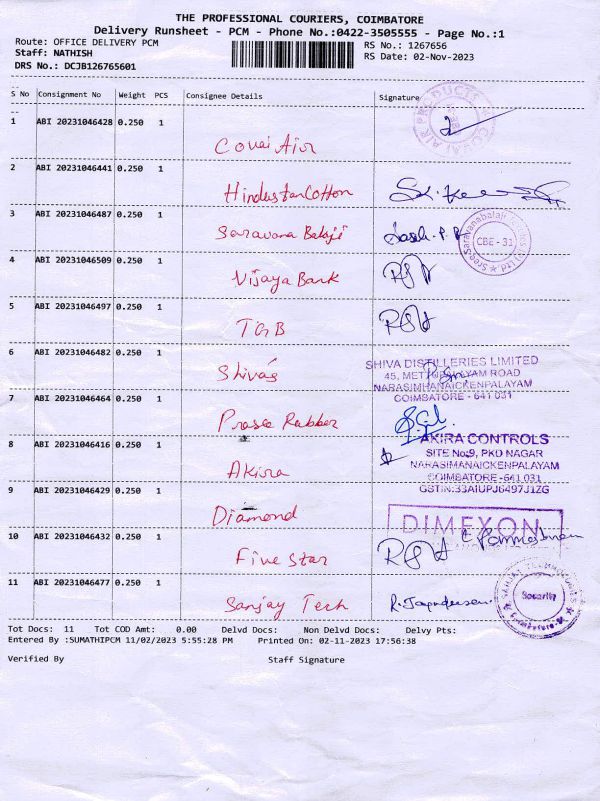 THE PROFESSIONAL COURIERS, COIMBATORE
Delivery Runsheet - PCM - Phone No.:0422-3505555 - Page No.:1
Route: OFFICE DELIVERY PCM RS No.: 1267656
Staff: NATHISH RS Date: 02-Nov-2023
DRS No.: DCJB126765601
S No Consignment No Weight PCS Consignee Details Signature
1 ABI 20231046428 0.250 1
Covai Air
2 ABI 20231046441 0.250 1
Hindustan Cotton
3 ABI 20231046487 0.250 1
Saravana Balaji
CBE - 31
4 ABI 20231046509 0.250 1
Vijaya Bank
5 ABI 20231046497 0.250 1
TGB
6 ABI 20231046482 0.250 1
Shivas
SHIVA DISTILLERIES LIMITED
45, METTUPALAYAM ROAD
NARASIMHANAICKENPALAYAM
COIMBATORE - 641 031
7 ABI 20231046464 0.250 1
Rubber
8 ABI 20231046416 0.250 1
Akira
AKIRA CONTROLS
SITE No:9, PKD NAGAR
NARASIMANAICKENPALAYAM
COIMBATORE -641 031
GSTIN:33AIUPJ6497J1ZG
9 ABI 20231046429 0.250 1
Diamond
DIMEXON
10 ABI 20231046432 0.250 1
Five Star
11 ABI 20231046477 0.250 1
Sanjay Tech
Security
Tot Docs: 11 Tot COD Amt: 0.00 Delvd Docs: Non Delvd Docs: Delvy Pts:
Entered By :SUMATHIPCM 11/02/2023 5:55:28 PM Printed On: 02-11-2023 17:56:38
Verified By Staff Signature